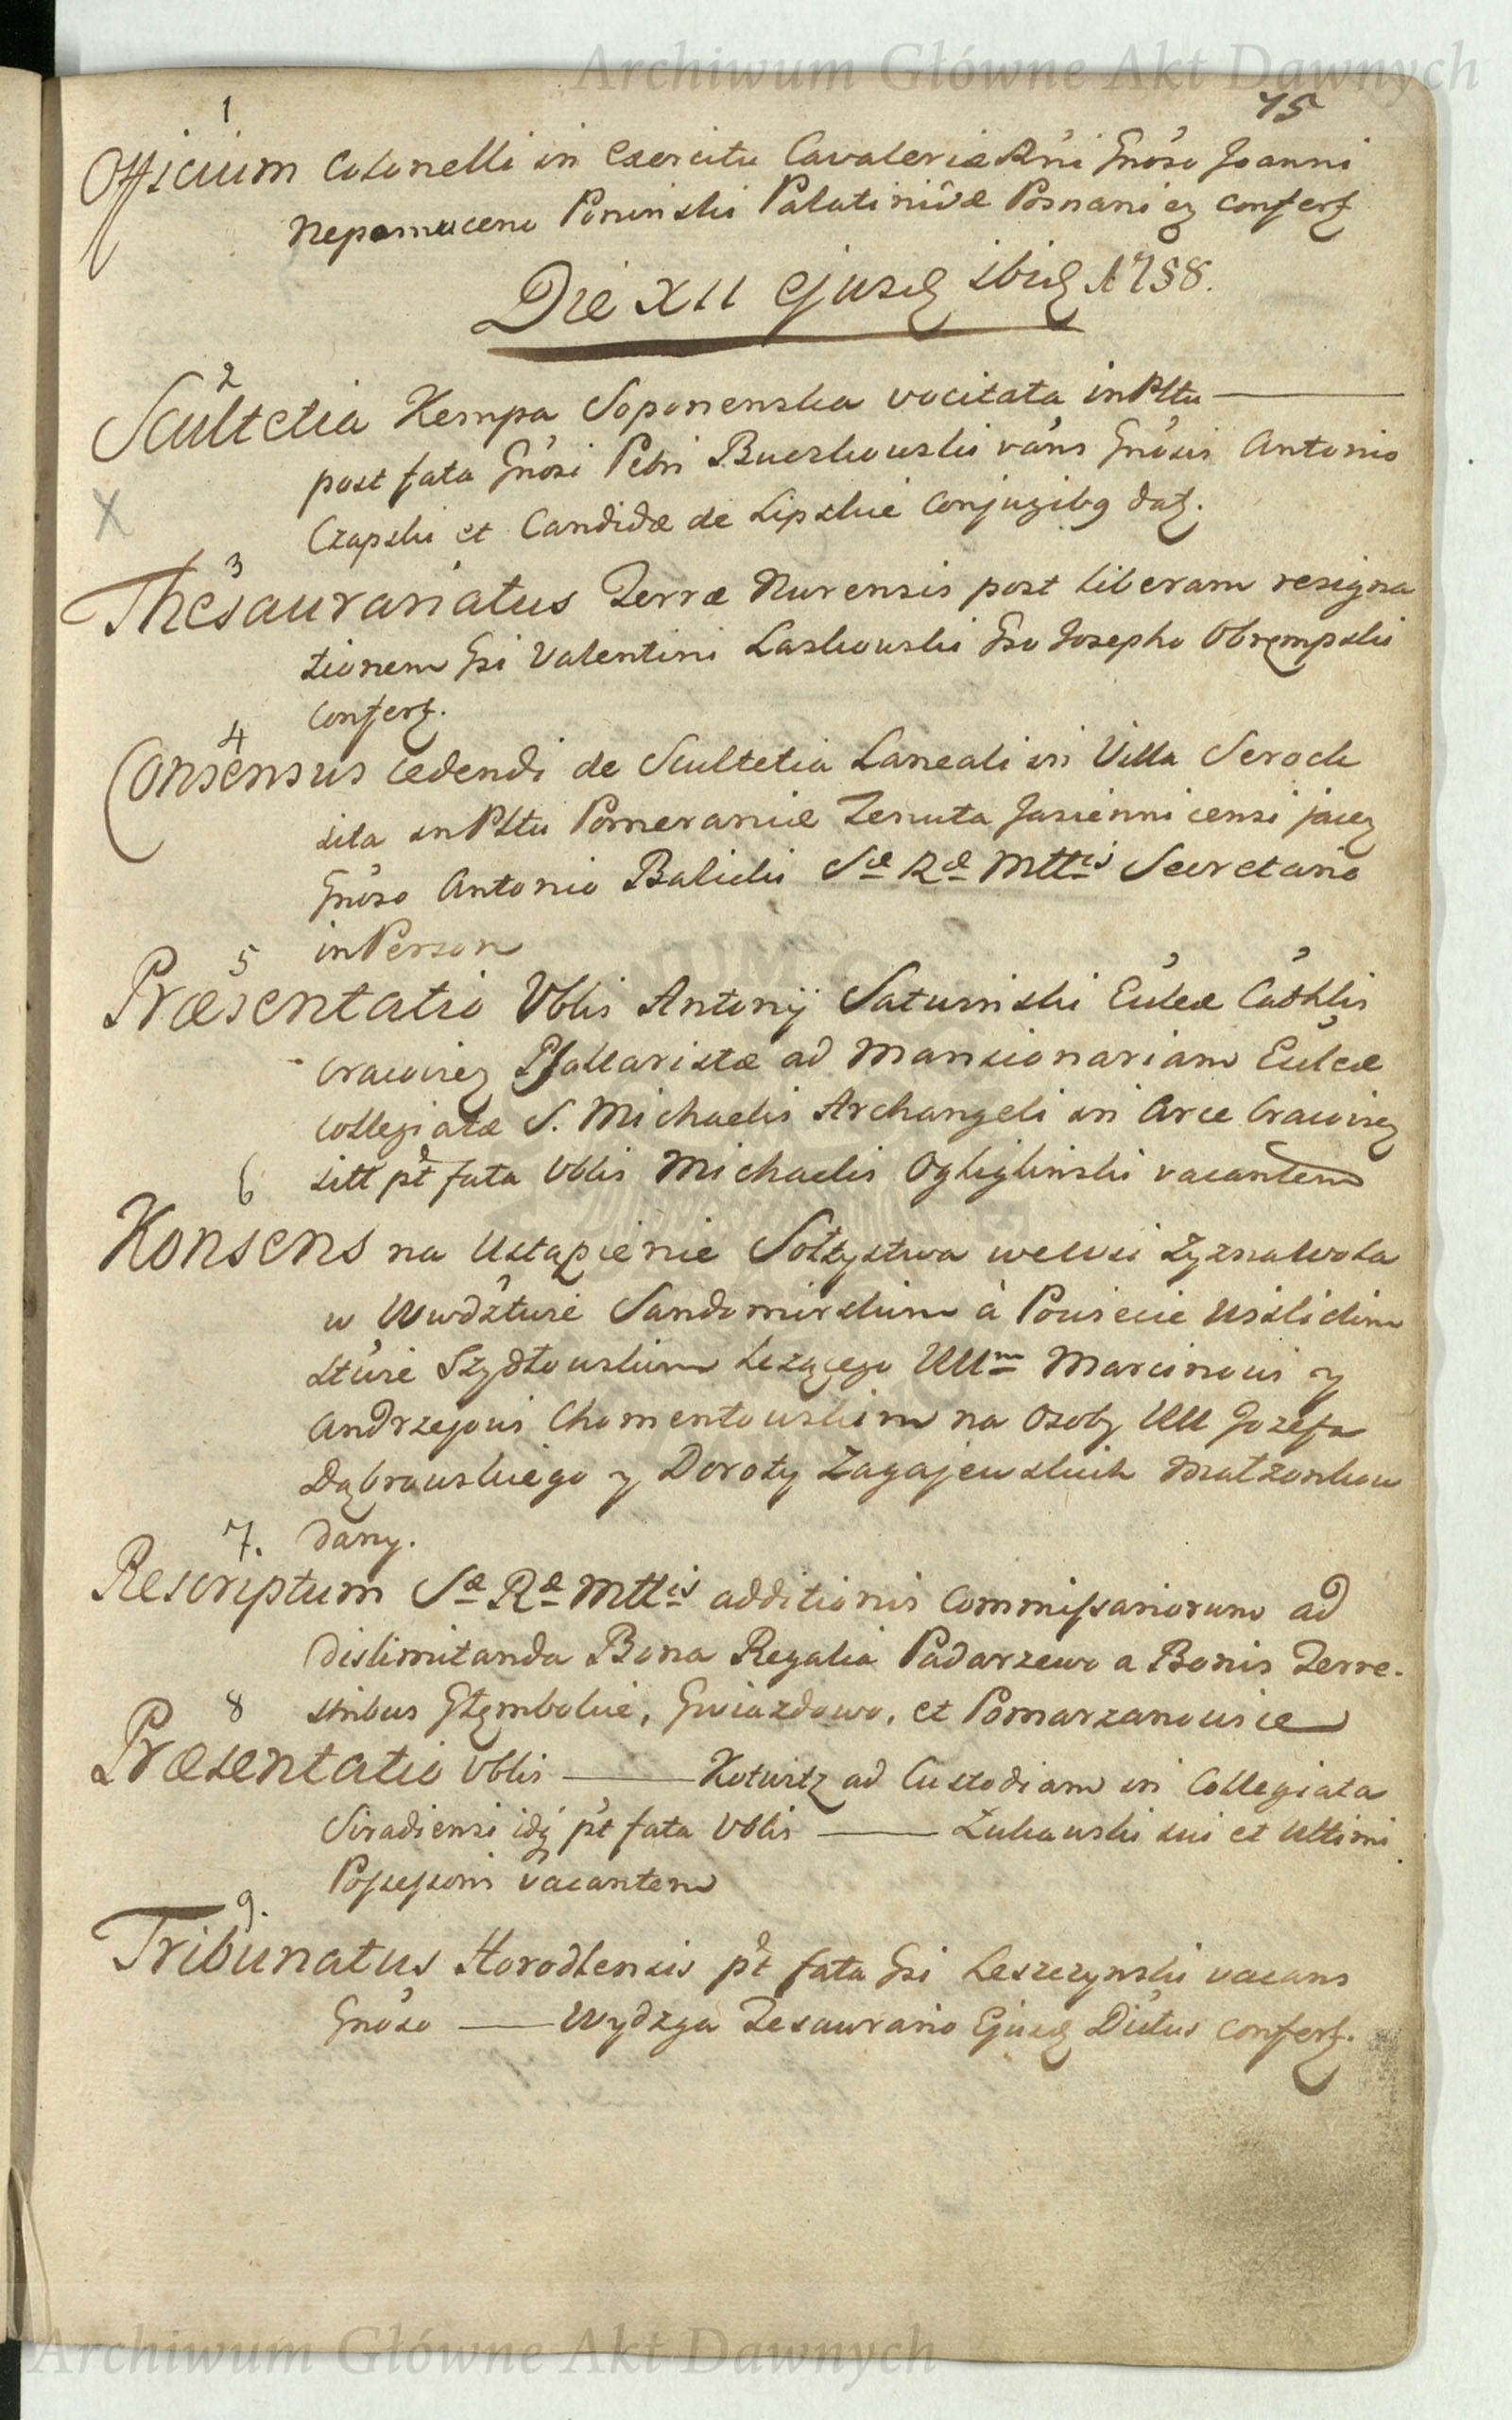 Archiwum Główne Akt Dawnych
75
1
Officium Colonelli in Exercitu Cavaleriæ Rni Gnoso Joanni
Nepomuceno Poninski Palatinidæ Posnanieȝ conferȝ
Die XII ejusdȝ ibidȝ A 758.
2
Scultetia Kempa Soponenska vocitata in Pltu ———
post fata Gnosi Petri Buczkowski vans Gnosis Antonio
Czapski et Candidæ de Lipskie Conjugibꝫ datȝ.
X
3
Thesaurariatus Terræ Nurensis post liberam resigna
tionem Gsi Valentini Laskowski Gso Josepho Obrempski
conferȝ.
4
Consensus cedendi de Scultetia Laneali in Villa Serock
sita in Pltu Pomeraniæ Tenuta Jasiennicensi jaceȝ
Gnoso Antonio Balicki Sæ Ræ Mttis Secretario
in Person
5
Præsentatio Vblis Antonij Saturnski Eulcæ Cathlis
Cracovieȝ Psaltaristæ ad Mansionariam Eulcæ
Collegiatæ S. Michaelis Archangeli in Arce Cracovieȝ
sitt pt fata Vblis Michaelis Ogligliński vacantem
6
Konsens na Ustąpienie Sołtystwa we Wsi Zyzna Wola
w Wwdztwie Sandomirskim à Powiecie Wislickim
Stwie Szydłowskim lezącego UUm Marcinowi y
Andrzejowi Chomentowskim na Osoby UU Jozefa
Dąbrowskiego y Doroty Zagajewskich Małżonkow
dany.
7.
Rescriptum Sæ Ræ Mttis additionis Commissariorum ad
dislimitanda Bona Regalia Padarzewo a Bonis Terre-
stribus Głembokie, Gwiazdowo, et Pomarzanowice
8
Præsentatio Vblis ——— Kotwitz ad Custodiam in Collegiata
Siradiensi idqȝ pt fata Vblis ——— Zukowski sui et Ultimi
Possessoris vacantem
9.
Tribunatus Horodlensis pt fata Gsi Leszczynski vacans
Gnoso ——— Wydzga Tesaurario Ejusdȝ Dictus conferȝ.
Archiwum Główne Akt Dawnych